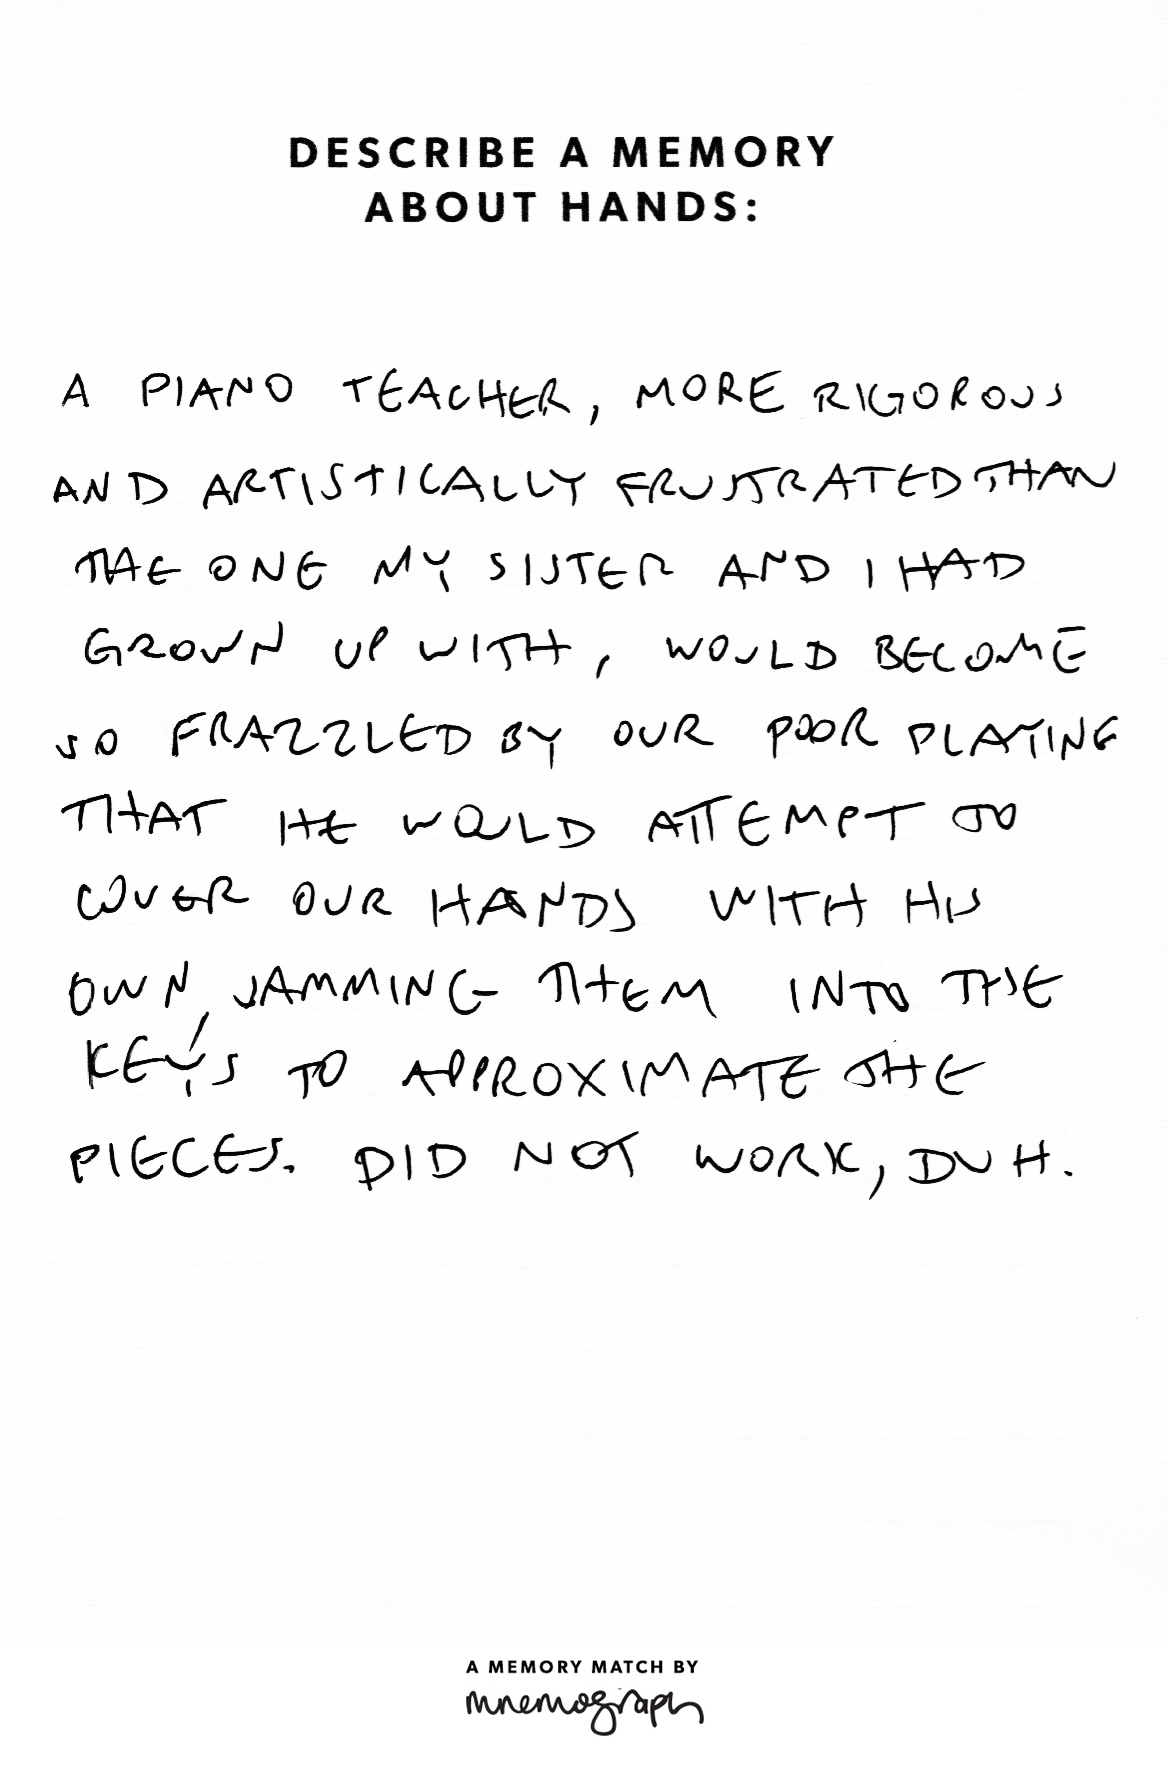 DESCRIBE A MEMORY
ABOUT HANDS:
A PIANO TEACHER, MORE RIGOROUS
AND ARTISTICALLY FRUSTRATED THAN
THE ONE MY SISTER AND I HAD
GROWN UP WITH, WOULD BECOME
SO FRAZZLED BY OUR POOR PLAYING
THAT HE WOULD ATTEMPT TO
COVER OUR HANDS WITH HIS
OWN, JAMMING THEM INTO THE
KEYS TO APPROXIMATE THE
PIECES. DID NOT WORK, DUH.
A MEMORY MATCH BY
mnemograph